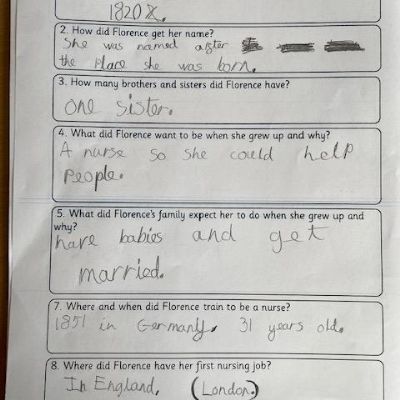 1820
2. How did Florence get her name?
She was named after
the place she was born.
3. How many brothers and sisters did Florence have?
One sister.
4. What did Florence want to be when she grew up and why?
A nurse so she could help
people.
5. What did Florence's family expect her to do when she grew up and
why?
have babies and get
married.
7. Where and when did Florence train to be a nurse?
1851 in Germany. 31 years old.
8. Where did Florence have her first nursing job?
In England, (London.)